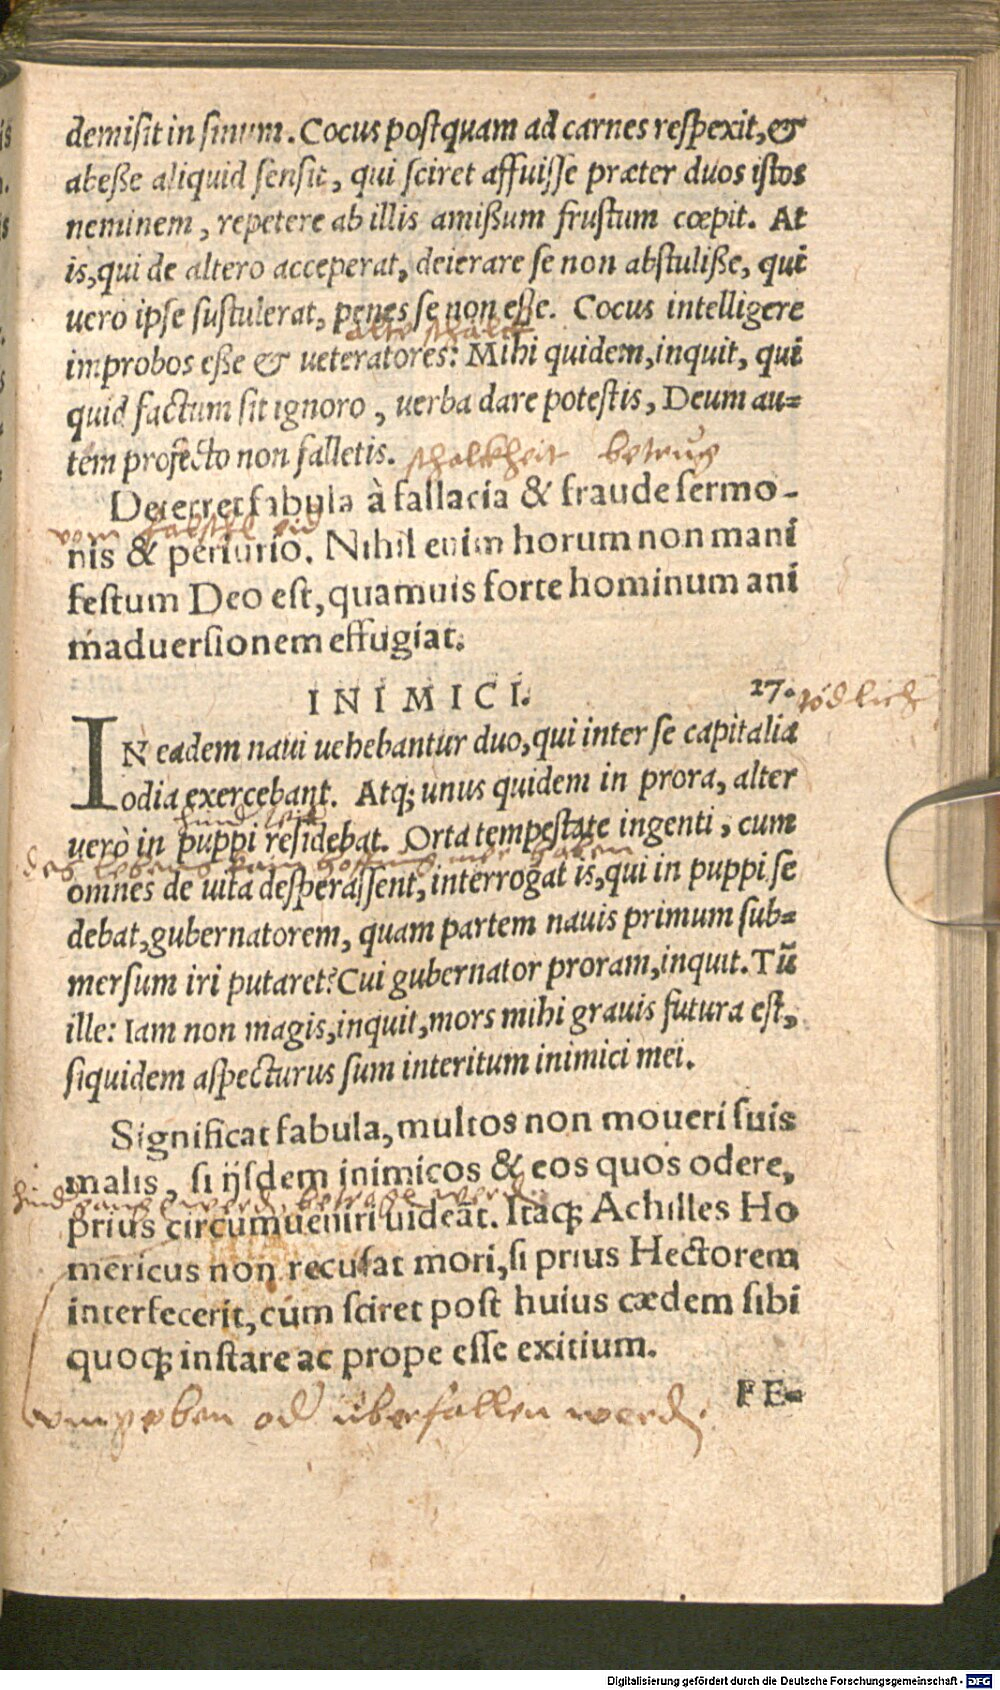 demisit in sinum. Cocus postquam ad carnes respexit, &
abeße aliquid sensit, qui sciret affuisse præter duos istos
neminem, repetere ab illis amißum frustum cœpit. At
is, qui de altero acceperat, deierare se non abstuliße, qui
uero ipse sustulerat, penes se non esse. Cocus intelligere
alte schälck
improbos eße & ueteratores: Mihi quidem, inquit, qui
quid factum sit ignoro, uerba dare potestis, Deum au=
tem profecto non falletis. schalkheit betrug
Deterret fabula à fallacia & fraude sermo-
vom falschen eid
nis & periurio. Nihil enim horum non mani
festum Deo est, quamuis forte hominum ani
maduersionem effugiat.
INIMICI. 27. tödlich
IN eadem naui uehebantur duo, qui inter se capitalia
odia exercebant. Atq; unus quidem in prora, alter
uerò in puppi residebat. Orta tempestate ingenti, cum
des lebens kain hoffnung mer haben
omnes de uita desperassent, interrogat is, qui in puppi se
debat, gubernatorem, quam partem nauis primum sub=
mersum iri putaret? Cui gubernator proram, inquit. Tũ
ille: Iam non magis, inquit, mors mihi grauis futura est,
siquidem aspecturus sum interitum inimici mei.
Significat fabula, multos non moueri suis
malis, si ijsdem inimicos & eos quos odere,
prius circumueniri uideãt. Itaq; Achilles Ho
mericus non recusat mori, si prius Hectorem
interfecerit, cum sciret post huius cædem sibi
quoq; instare ac prope esse exitium.
umgeben od überfallen werd.
FE=
Digitalisierung gefördert durch die Deutsche Forschungsgemeinschaft - DFG